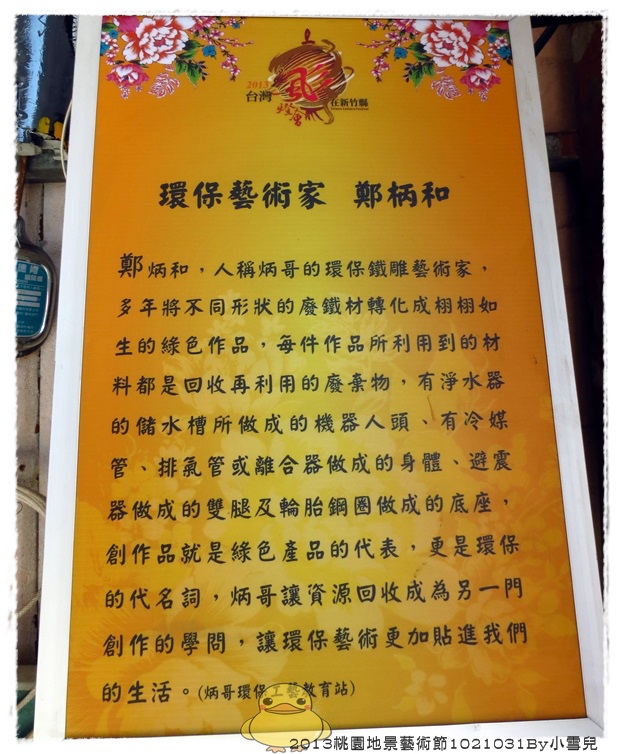 2013
台灣
燈會
在新竹縣
環保藝術家 鄭柄和
鄭炳和，人稱炳哥的環保鐵雕藝術家，
多年將不同形狀的廢鐵材轉化成栩栩如
生的綠色作品，每件作品所利用到的材
料都是回收再利用的廢棄物，有淨水器
的儲水槽所做成的機器人頭、有冷媒
管、排氣管或離合器做成的身體、避震
器做成的雙腿及輪胎鋼圈做成的底座，
創作品就是綠色產品的代表，更是環保
的代名詞，炳哥讓資源回收成為另一門
創作的學問，讓環保藝術更加貼進我們
的生活。(炳哥環保工藝教育站)
2013桃園地景藝術節1021031By小雪兒